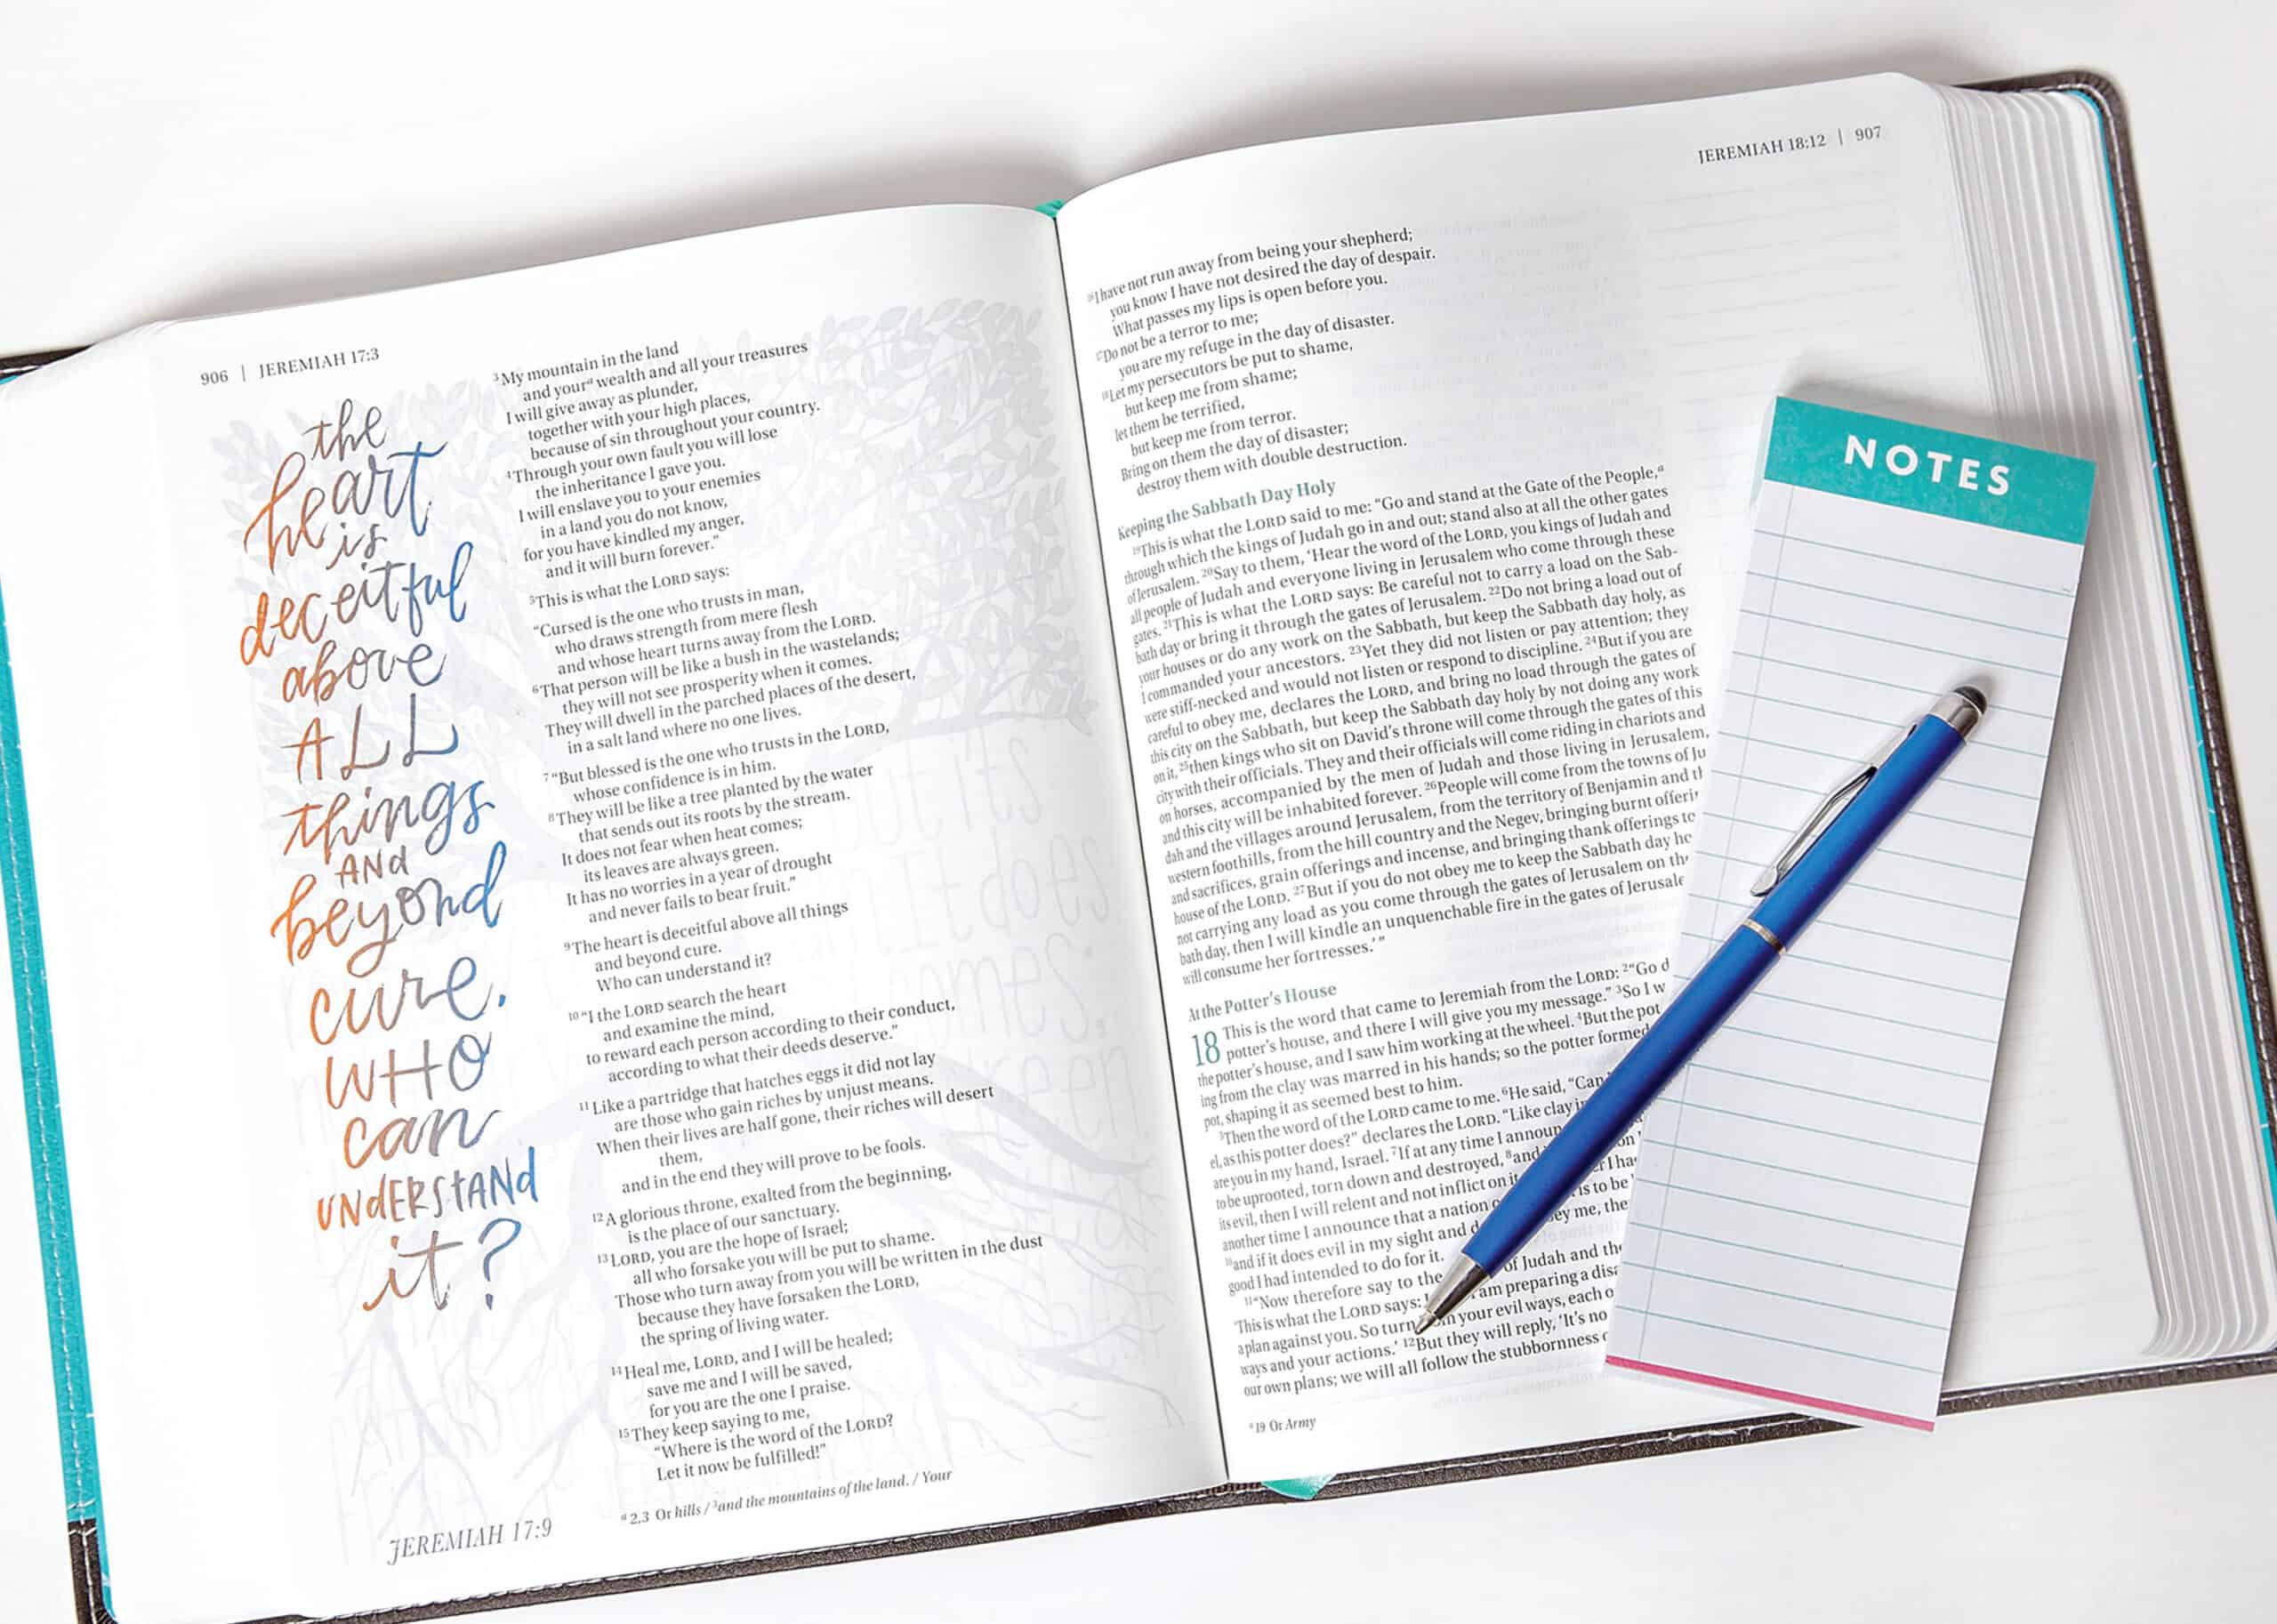 906 | JEREMIAH 17:3
the
heart
is
deceitful
above
ALL
things
AND
beyond
cure.
WHO
can
UNdERStANd
it?
JEREMIAH 17:9
3My mountain in the land
and yourª wealth and all your treasures
I will give away as plunder,
together with your high places,
because of sin throughout your country.
4Through your own fault you will lose
the inheritance I gave you.
I will enslave you to your enemies
in a land you do not know,
for you have kindled my anger,
and it will burn forever.”
5This is what the LORD says:
“Cursed is the one who trusts in man,
who draws strength from mere flesh
and whose heart turns away from the LORD.
6That person will be like a bush in the wastelands;
they will not see prosperity when it comes.
They will dwell in the parched places of the desert,
in a salt land where no one lives.
7“But blessed is the one who trusts in the LORD,
whose confidence is in him.
8They will be like a tree planted by the water
that sends out its roots by the stream.
It does not fear when heat comes;
its leaves are always green.
It has no worries in a year of drought
and never fails to bear fruit.”
9The heart is deceitful above all things
and beyond cure.
Who can understand it?
10“I the LORD search the heart
and examine the mind,
to reward each person according to their conduct,
according to what their deeds deserve.”
11Like a partridge that hatches eggs it did not lay
are those who gain riches by unjust means.
When their lives are half gone, their riches will desert
them,
and in the end they will prove to be fools.
12A glorious throne, exalted from the beginning,
is the place of our sanctuary.
13LORD, you are the hope of Israel;
all who forsake you will be put to shame.
Those who turn away from you will be written in the dust
because they have forsaken the LORD,
the spring of living water.
14Heal me, LORD, and I will be healed;
save me and I will be saved,
for you are the one I praise.
15They keep saying to me,
“Where is the word of the LORD?
Let it now be fulfilled!”
ª 2,3 Or hills / 3and the mountains of the land. / Your
JEREMIAH 18:12 | 907
16I have not run away from being your shepherd;
you know I have not desired the day of despair.
What passes my lips is open before you.
17Do not be a terror to me;
you are my refuge in the day of disaster.
18Let my persecutors be put to shame,
but keep me from shame;
let them be terrified,
but keep me from terror.
Bring on them the day of disaster;
destroy them with double destruction.
Keeping the Sabbath Day Holy
19This is what the LORD said to me: “Go and stand at the Gate of the People,ª
through which the kings of Judah go in and out; stand also at all the other gates
of Jerusalem. 20Say to them, ‘Hear the word of the LORD, you kings of Judah and
all people of Judah and everyone living in Jerusalem who come through these
gates. 21This is what the LORD says: Be careful not to carry a load on the Sab-
bath day or bring it through the gates of Jerusalem. 22Do not bring a load out of
your houses or do any work on the Sabbath, but keep the Sabbath day holy, as
I commanded your ancestors. 23Yet they did not listen or pay attention; they
were stiff-necked and would not listen or respond to discipline. 24But if you are
careful to obey me, declares the LORD, and bring no load through the gates of
this city on the Sabbath, but keep the Sabbath day holy by not doing any work
on it, 25then kings who sit on David’s throne will come through the gates of this
city with their officials. They and their officials will come riding in chariots and
on horses, accompanied by the men of Judah and those living in Jerusalem,
and this city will be inhabited forever. 26People will come from the towns of Ju
dah and the villages around Jerusalem, from the territory of Benjamin and
western foothills, from the hill country and the Negev, bringing burnt
and sacrifices, grain offerings and incense, and bringing thank offerings to
house of the LORD. 27But if you do not obey me to keep the Sabbath day
not carrying any load as you come through the gates of Jerusalem on
bath day, then I will kindle an unquenchable fire in the gates of
will consume her fortresses.’ ”
At the Potter’s House
18 This is the word that came to Jeremiah from the LORD: 2“Go
potter’s house, and there I will give you my message.” 3So I
the potter’s house, and I saw him working at the wheel. 4But the pot
ing from the clay was marred in his hands; so the potter formed
pot, shaping it as seemed best to him.
5Then the word of the LORD came to me. 6He said, “Can
el, as this potter does?” declares the LORD. “Like clay
are you in my hand, Israel. 7If at any time I
to be uprooted, torn down and destroyed, 8and
its evil, then I will relent and not inflict on
another time I announce that a nation is to be
10and if it does evil in my sight and me, the
good I had intended to do for it.
11“Now therefore say to the of Judah and
‘This is what the LORD says: am preparing a
a plan against you. So turn your evil ways, each
ways and your actions.’ 12But they will reply, ‘It’s no
our own plans; we will all follow the stubbornness
ª 19 Or Army
NOTES